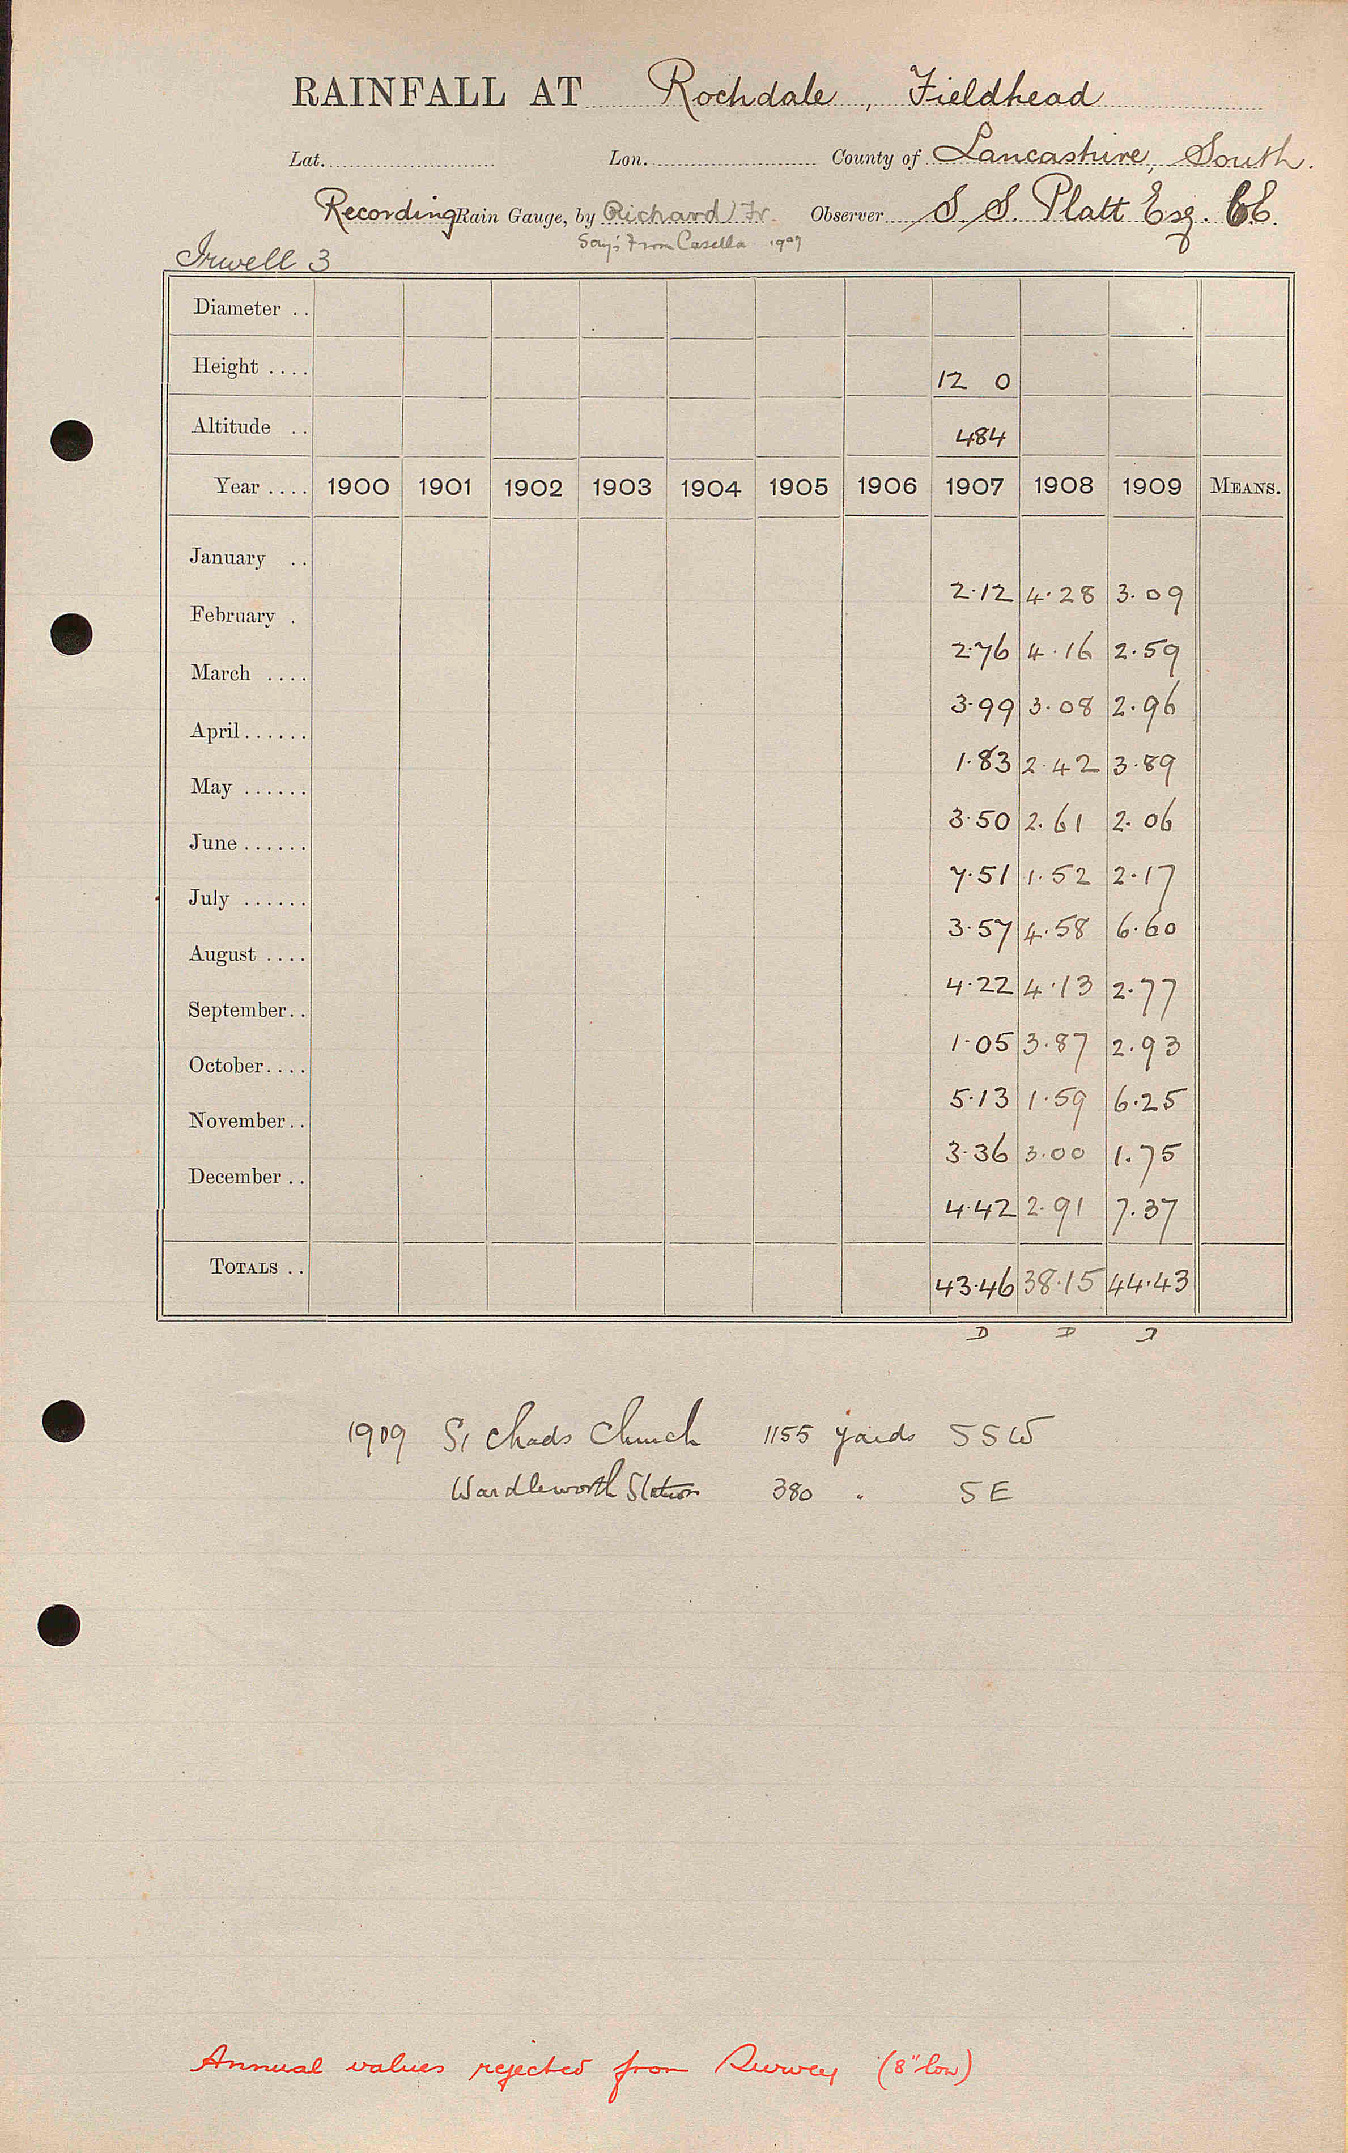 RAINFALL AT Rochdale, Fieldhead
Lat. Lon. County of Lancashire, South.
Recording Rain Gauge, by Richard Fr. Observer S. S. Platt Esq. CE.
Says From Casella 1909
Irwell 3
Diameter ..
Height .... 12 0
Altitude .. 484
Year .... 1900 1901 1902 1903 1904 1905 1906 1907 1908 1909 MEANS.
January .. 2.12 4.28 3.09
February . 2.76 4.16 2.59
March .... 3.99 3.08 2.96
April...... 1.83 2.42 3.89
May ...... 3.50 2.61 2.06
June...... 7.51 1.52 2.17
July ...... 3.57 4.58 6.60
August .... 4.22 4.13 2.77
September.. 1.05 3.87 2.93
October.... 5.13 1.59 6.25
November.. 3.36 3.00 1.75
December .. 4.42 2.91 7.37
TOTALS .. 43.46 38.15 44.43
D D D
1909 St Chads Church 1155 yards SSW
Wardleworth Station 380 " SE
Annual values rejected from Survey (8" low)